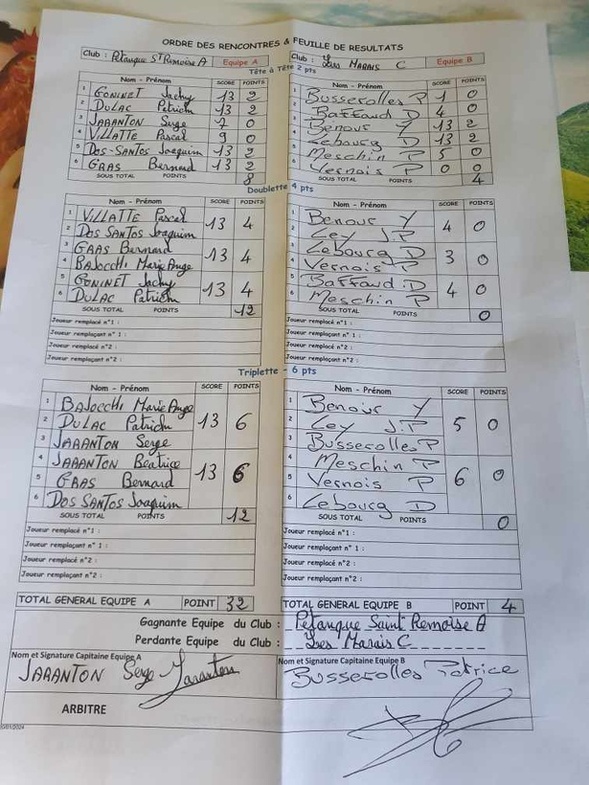 ORDRE DES RENCONTRES & FEUILLE DE RESULTATS
Club : Pétanque St Rémoise A Equipe A
Club : Les MARAIS C Equipe B
Tête à Tête 2 pts
Nom - Prénom SCORE POINTS
1 GONINET Jacky 13 2
2 DULAC Patrick 13 2
3 JARANTON Serge 7 0
4 VILLATTE Pascal 9 0
5 DOS-SANTOS Joaquim 13 2
6 GRAS Bernard 13 2
SOUS TOTAL POINTS 8
Nom - Prénom SCORE POINTS
1 Busserolles P 1 0
2 Baffaud D 4 0
3 Benour Y 13 2
4 Lebourg D 13 2
5 Meschin P 5 0
6 Vernois P 0 0
SOUS TOTAL POINTS 4
Doublette 4 pts
Nom - Prénom SCORE POINTS
1 VILLATTE Pascal 13 4
2 DOS SANTOS Joaquim
3 GRAS Bernard 13 4
4 BAJOCCHI Marie Ange
5 GONINET Jacky 13 4
6 DULAC Patrick
SOUS TOTAL POINTS 12
Joueur remplacé n°1 :
Joueur remplaçant n° 1 :
Joueur remplacé n°2 :
Joueur remplaçant n°2 :
Nom - Prénom SCORE POINTS
1 Benour Y 4 0
2 Ley J.P
3 Lebourg D 3 0
4 Vernois P
5 Baffaud D 4 0
6 Meschin P
SOUS TOTAL POINTS 0
Joueur remplacé n°1 :
Joueur remplaçant n°1 :
Joueur remplacé n°2 :
Joueur remplaçant n°2 :
Triplette - 6 pts
Nom - Prénom SCORE POINTS
1 BAJOCCHI Marie Ange
2 DULAC Patrick 13 6
3 JARANTON Serge
4 JARANTON Béatrice
5 GRAS Bernard 13 6
6 DOS SANTOS Joaquim
SOUS TOTAL POINTS 12
Joueur remplacé n°1 :
Joueur remplaçant n° 1 :
Joueur remplacé n°2 :
Joueur remplaçant n°2 :
Nom - Prénom SCORE POINTS
1 Benour Y
2 Ley J.P 5 0
3 Busserolles P
4 Meschin P
5 Vernois P 6 0
6 Lebourg D
SOUS TOTAL POINTS 0
Joueur remplacé n°1 :
Joueur remplaçant n°1 :
Joueur remplacé n°2 :
Joueur remplaçant n°2 :
TOTAL GENERAL EQUIPE A POINT 32
TOTAL GENERAL EQUIPE B POINT 4
Gagnante Equipe du Club : Pétanque Saint Rémoise A
Perdante Equipe du Club : Les Marais C
Nom et Signature Capitaine Equipe A
JARANTON Serge Jaranton
Nom et Signature Capitaine Equipe B
Busserolles Patrice
ARBITRE